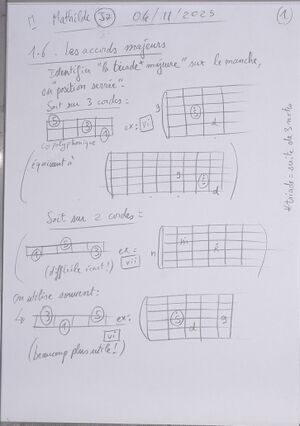 Mathilde 57 04/11/2025 ①
1.6. Les accords majeurs
Identifier "la triade* majeure" sur le manche,
en "position serrée".
Soit sur 3 cordes :
⑤ ③ ① ex: vi
polyphonique
g
d
(équivaut à
g
d
*triade = suite de 3 notes
Soit sur 2 cordes :
① ⑤ ③ ex: vii
(difficile écart !)
on utilise souvent :
↳ ③ ① ⑤ ex: vi
d g
(beaucoup plus utile !)